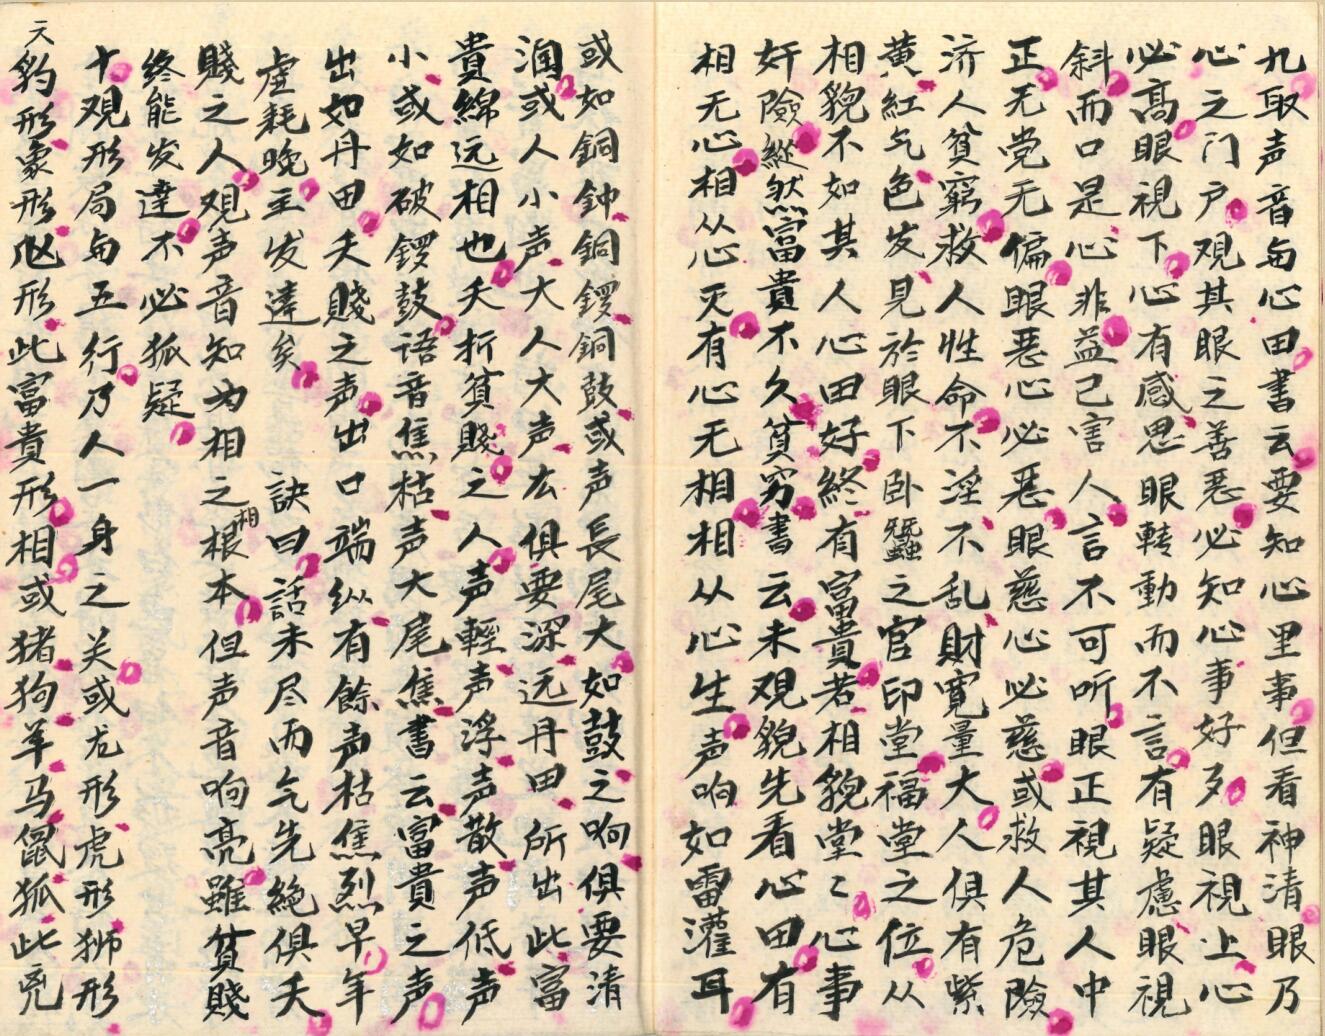 九取声音与心田書云要知心里事但看神清眼乃
心之门户观其眼之善恶必知心事好歹眼視上心
必高眼視下心有感思眼轉動而不言有疑慮眼視
斜而口是心非益己害人言不可听眼正視其人中
正无党无偏眼恶心必恶眼慈心必慈或救人危險
济人貧窮救人性命不淫不乱財寬量大人俱有紫
黄紅气色发見於眼下卧蠶之官印堂福堂之位从
相貌不如其人心田好終有富貴若相貌堂〻心事
奸險縱然富貴不久貧穷書云未观貌先看心田有
相无心相从心灭有心无相相从心生声响如雷灌耳
或如銅鈡銅鑼銅鼓或声長尾大如鼓之响俱要清
润或人小声大人大声宏俱要深远丹田所出此富
貴綿远相也夭折貧賤之人声輕声浮声散声低声
小或如破鑼鼓语音焦枯声大尾焦書云富貴之声
出如丹田夭賤之声出口端纵有餘声枯焦烈早年
虛耗晚主发達矣　訣曰話未尽而气先絶俱夭
賤之人观声音知为相之相根本但声音响亮雖貧賤
终能发達不必狐疑
十观形局与五行乃人一身之关或龙形虎形狮形
豹形象形形此富貴形相或猪狗羊马鼠狐此兜